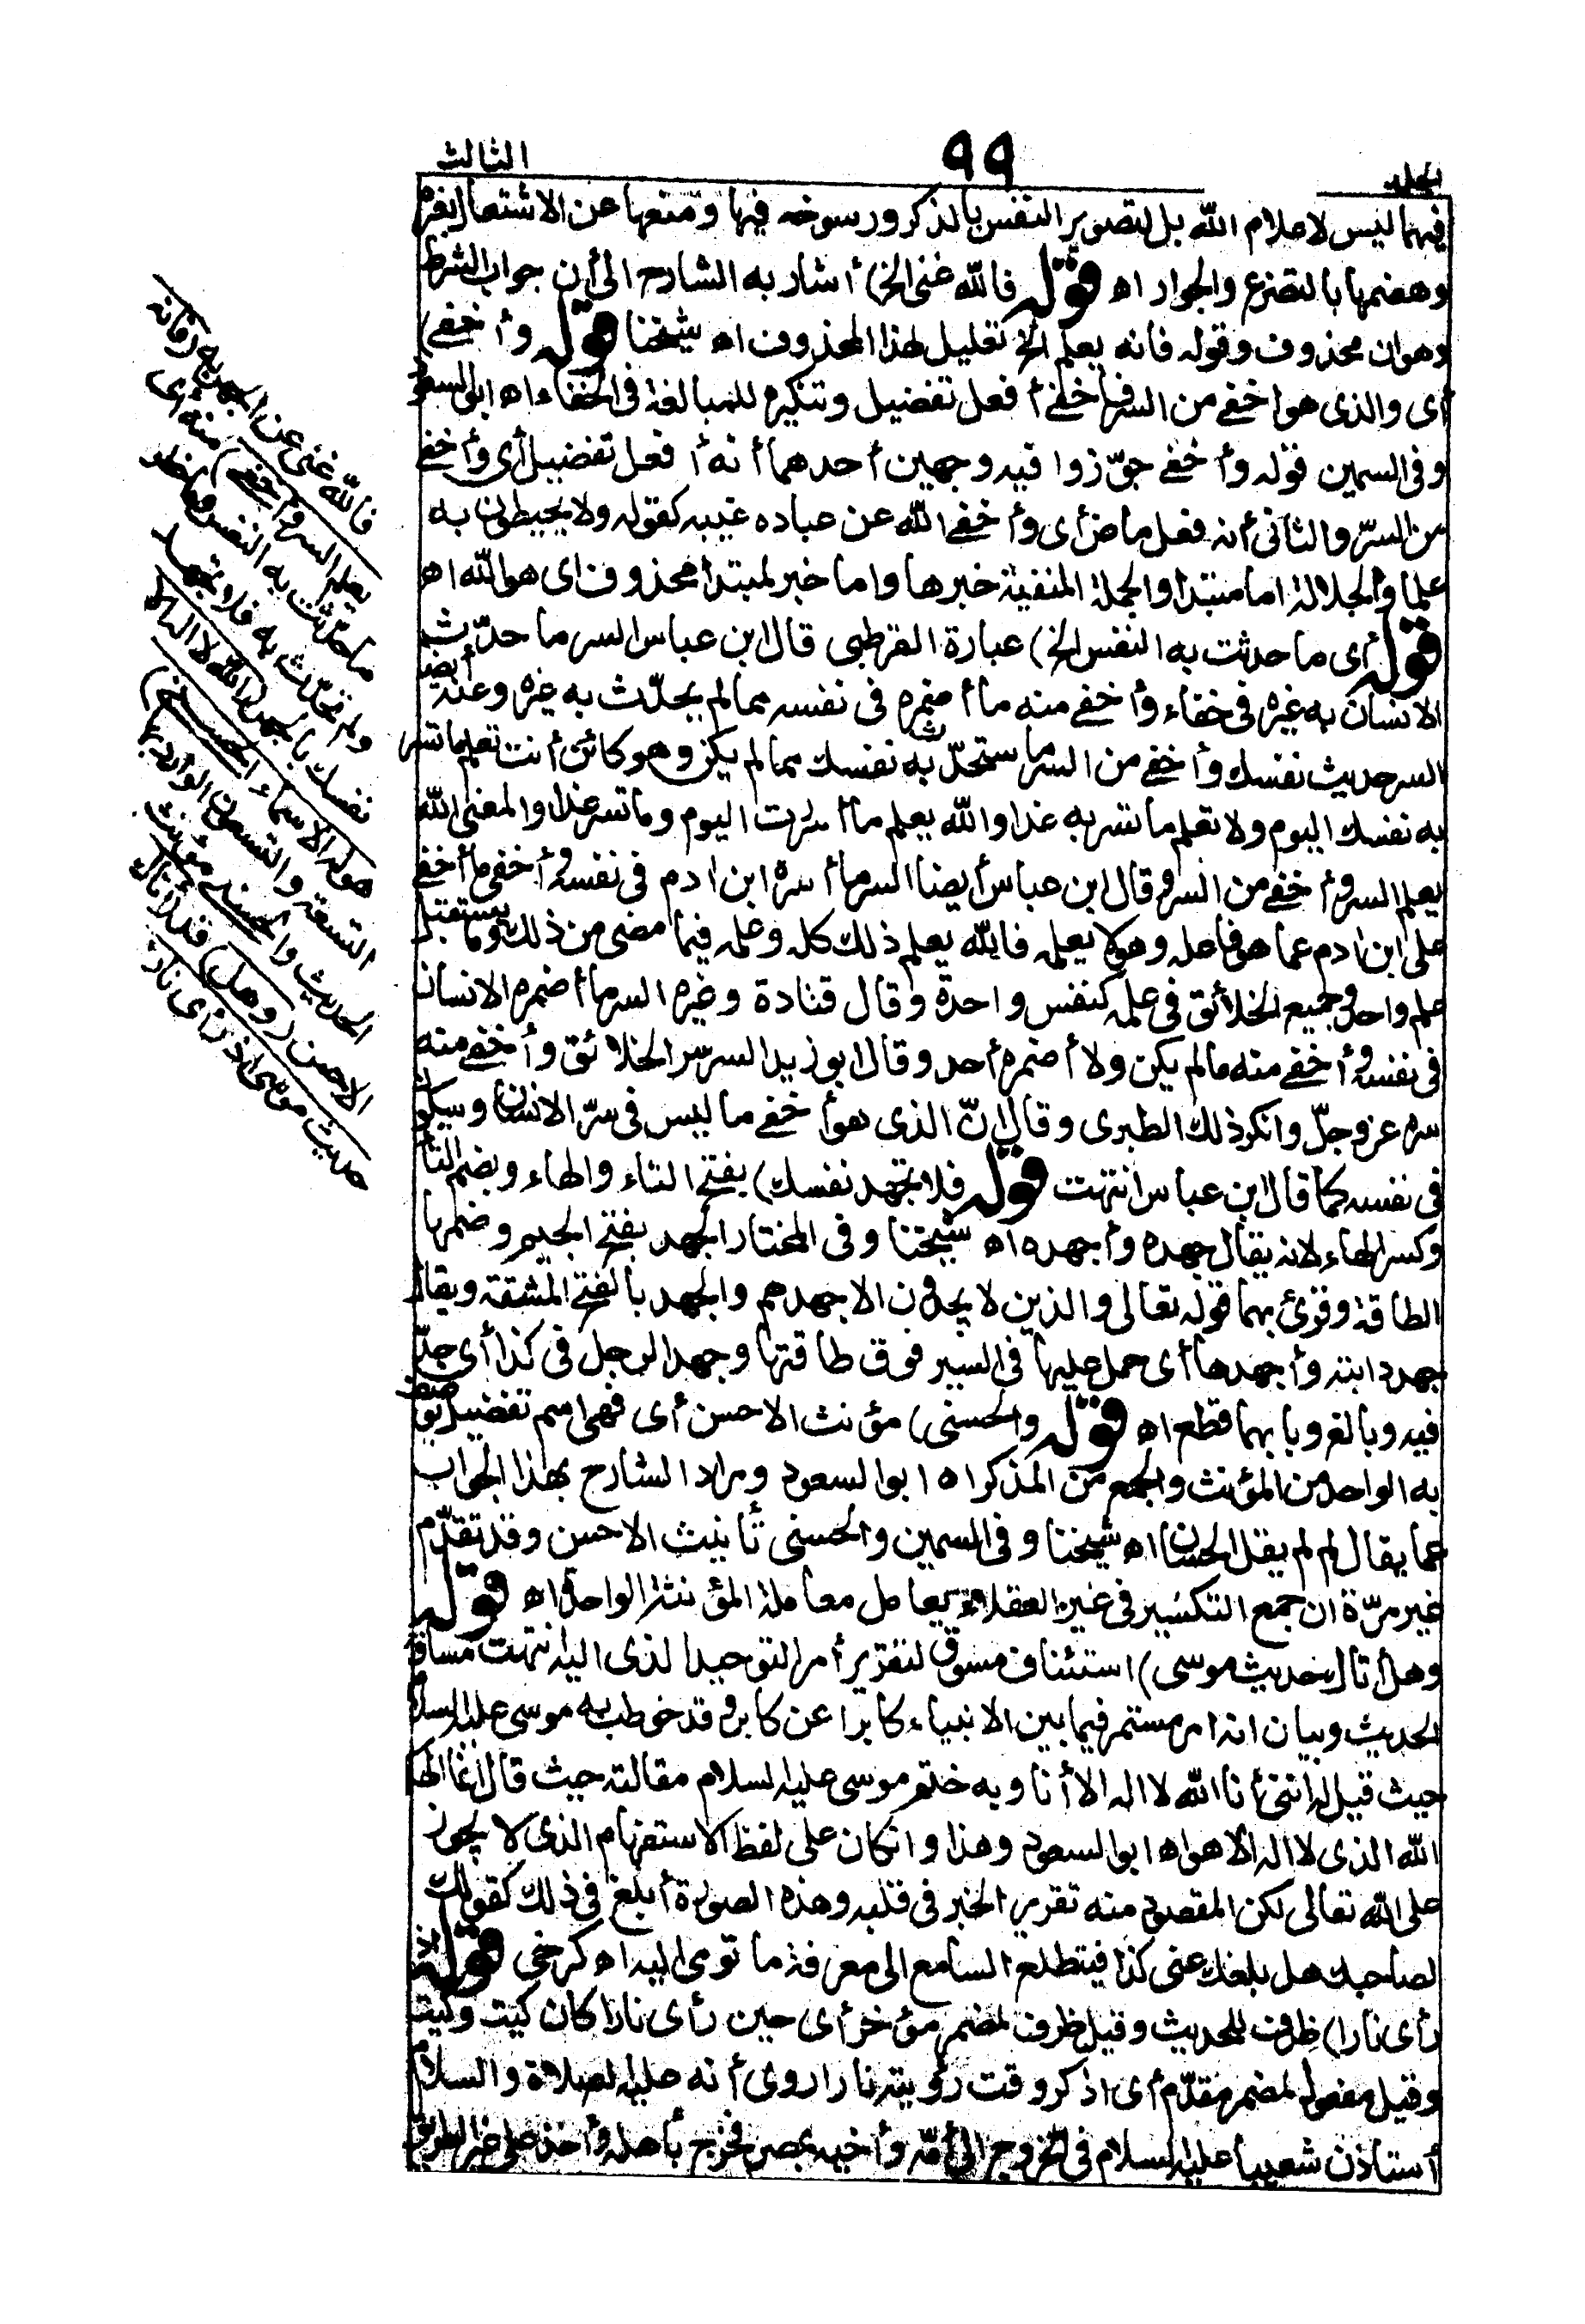 الجلد
٩٩
الثالث
فيهما ليس لاعلام الله بل لتصوير النفس بالذكر ورسوخه فيها ومنعها عن الاشتغال بغيره
وهضمها بالتضرع والجوار اه قوله فالله غنى الخ) أشار به الشارح الى أن جواب الشرط
وهو ان محذوف وقوله فانه يعلم الخ تعليل لهذا المحذوف اه شيخنا قوله وأخفى)
أى والذى هو اخفى من السر فأخفى أفعل تفضيل وتنكيره للمبالغة فى الخفاء اه ابو السعود
وفى السمين قوله وأخفى جوّزوا فيه وجهين أحدهما أنه أفعل تفضيل أى وأخفى
من السرّ والثانى أنه فعل ماض أى وأخفى الله عن عباده غيبه كقوله ولا يحيطون به
علما والجلالة اما مبتدا والجملة المنفية خبرها واما خبر لمبتدأ محذوف اى هو الله اه
قوله أى ما حدثت به النفس الخ) عبارة القرطبى قال ابن عباس السر ما حدّث
الانسان به غيره فى خفاء وأخفى منه ما أضمره فى نفسه مما لم يحدّث به غيره وعنه أيضا
السر حديث نفسك وأخفى من السر ما ستحدّث به نفسك مما لم يكن وهو كائن أنت تعلم ما تسر
به نفسك اليوم ولا تعلم ما تسر به غدا والله يعلم ما أسررت اليوم وما تسر غدا والمعنى الله
يعلم السر وأخفى من السر وقال ابن عباس أيضا السر ما أسره ابن ادم فى نفسه وأخفى ما أخفى
على ابن ادم عما هو فاعله وهو لا يعلمه فالله يعلم ذلك كله وعلمه فيما مضى من ذلك وما يستقبل
علم واحد وجميع الخلائق فى علمه كنفس واحدة وقال قتادة وغيره السر ما أضمره الانسان
فى نفسه وأخفى منه ما لم يكن ولا أضمره أحد وقال ابو زيد السر سر الخلائق وأخفى منه
سره عز وجلّ وانكر ذلك الطبرى وقال انّ الذى هو أخفى ما ليس فى سرّ الانسان وسيكون
فى نفسه كما قال ابن عباس انتهت قوله فلا تجهد نفسك) بفتح التاء والهاء وبضم التاء
وكسر الهاء لانه يقال جهده وأجهده اه شيخنا وفى المختار الجهد بفتح الجيم وضمها
الطاقة وقرئ بهما قوله تعالى والذين لا يجدون الا جهدهم والجهد بالفتح المشقة ويقال
جهد دابته وأجهدها أى حمل عليها فى السير فوق طاقتها وجهد الرجل فى كذا أى جدّ
فيه وبالغ وبابهما قطع اه قوله والحسنى) مؤنث الاحسن أى فهى اسم تفضيل يوصف
به الواحد من المؤنث والجمع من المذكر اه ابو السعود ومراد الشارح بهذا الجواب
عما يقال لم لم يقل الحسان اه شيخنا وفى السمين والحسنى تأنيث الاحسن وقد تقدّم
غير مرّة ان جمع التكسير فى غير العقلاء يعامل معاملة المؤنثة الواحدة اه قوله
وهل أتاك حديث موسى) استئناف مسوق لتقرير أمر التوحيد الذى اليه انتهت مساق
الحديث وبيان انه امر مستمر فيما بين الانبياء كابرا عن كابر وقد خوطب به موسى عليه السلام
حيث قيل له اننى أنا الله لا اله الا أنا وبه ختم موسى عليه السلام مقالته حيث قال انما الهكم
الله الذى لا اله الا هو اه ابو السعود وهذا وان كان على لفظ الاستفهام الذى لا يجوز
على الله تعالى لكن المقصود منه تقرير الخبر فى قلبه وهذه الصورة أبلغ فى ذلك كقولك
لصاحبك هل بلغك عنى كذا فيتطلع السامع الى معرفة ما تومى اليه اه كرخى قوله اذ
رأى نارا) ظرف للحديث وقيل ظرف لمضمر مؤخر أى حين رأى نارا كان كيت وكيت
وقيل مفعول لمضمر مقدّم أى اذكر وقت رؤيته نارا روى أنه عليه الصلاة والسلام
أستأذن شعيبا عليه السلام فى الخروج الى أمّه وأخيه بمصر فخرج بأهله وأخذ على غير الطريق
فالله غنى عن الجهر به (فانه
يعلم السر وأخفى) منه أى
ما حدّثت به النفس وما خطر
ولم تحدّث به فلا تجهد
نفسك بالجهر (الله لا اله الا
هو له الاسماء الحسنى)
التسعة والتسعون الوارد بها
الحديث والحسنى مؤنث
الاحسن (وهل) قد (أتاك
حديث موسى اذ رأى نارا